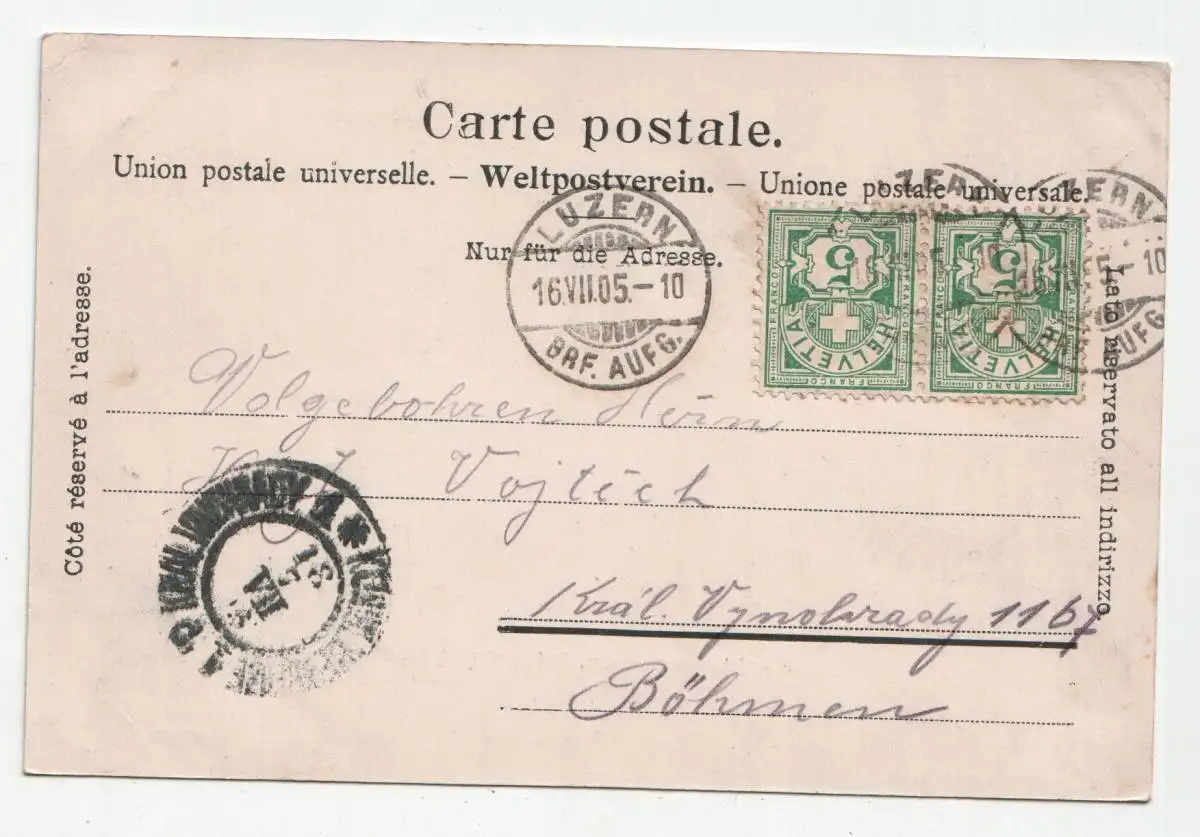 Carte postale.
Union postale universelle. – Weltpostverein. – Unione postale universale.
Nur für die Adresse.
LUZERN
16.VII.05.–10
BRF. AUFG.
LUZERN
BRF. AUFG.
5
HELVETIA
FRANCO
5
HELVETIA
FRANCO
Côté réservé à l'adresse.
Lato riservato all indirizzo
Volgebohren Herrn
Vojtěch
Král. Vynohrady 1167
Böhmen
18
VII